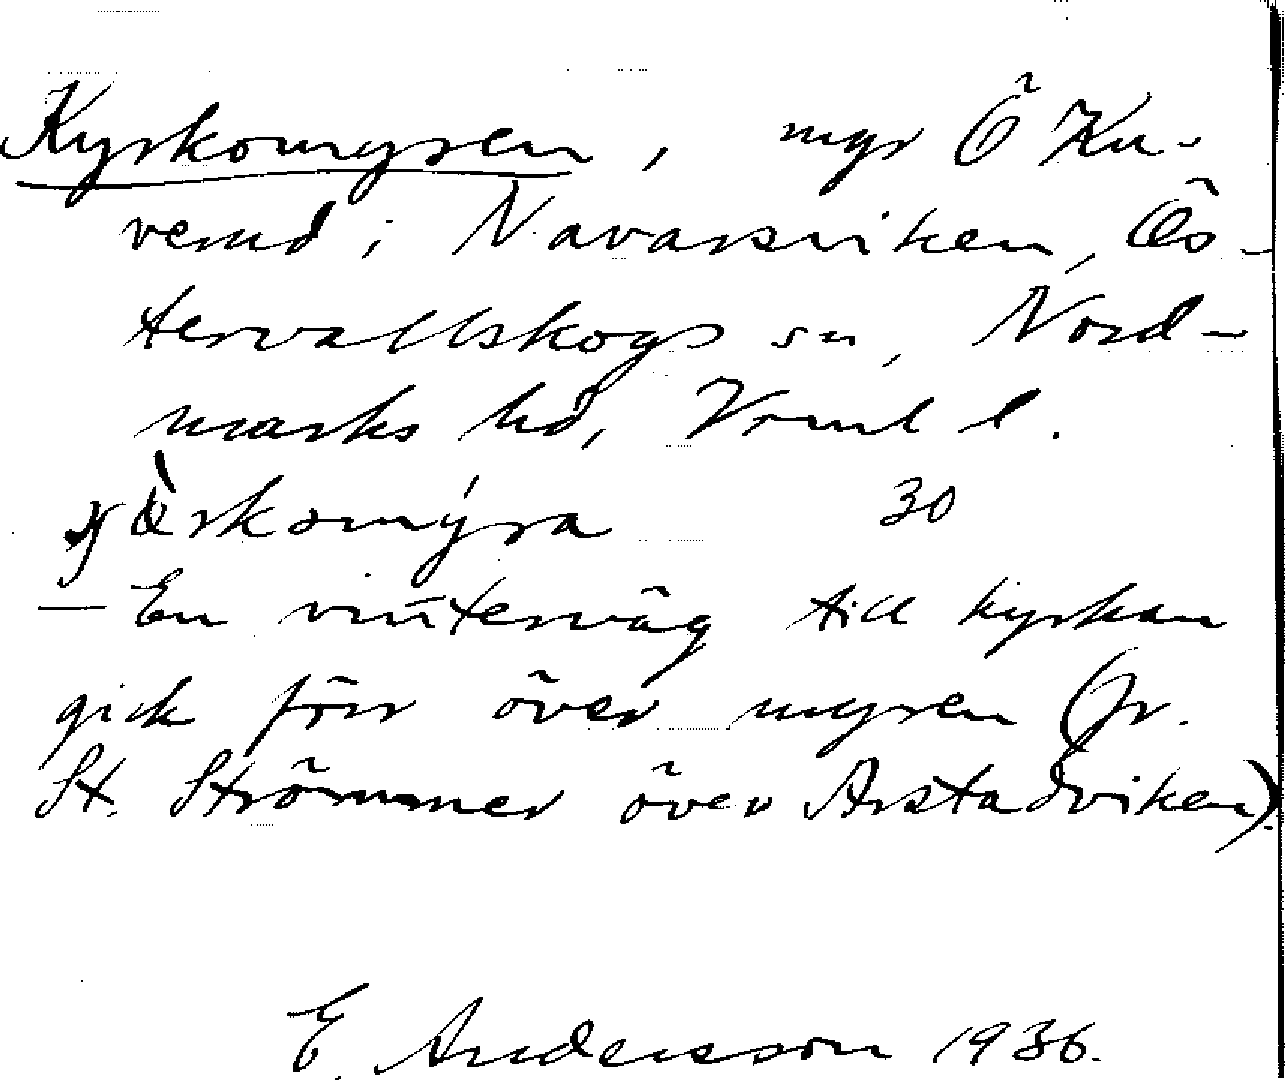 Kyrkomyren, myr Ö Ku-
verud i Navarsviken, Ös-
tervallskogs sn, Nord-
marks hd, Vrml l.
30
— En vinterväg till kyrkan
gick förr över myren (fr.
St. Strömmer över Arstadviken).
E. Andersson 1936.